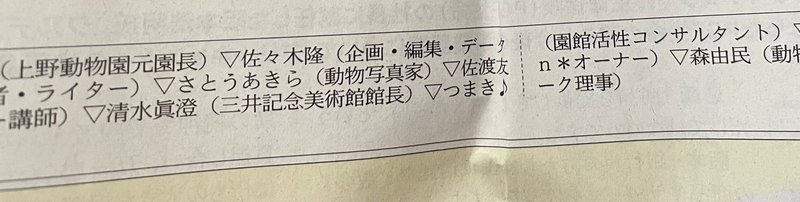 （上野動物園元園長）▽佐々木隆（企画・編集・データ
者・ライター）▽さとうあきら（動物写真家）▽佐渡友
ー講師）▽清水眞澄（三井記念美術館館長）▽つまき♪
（園館活性コンサルタント）▽
ｎ＊オーナー）▽森由民（動物
ーク理事）